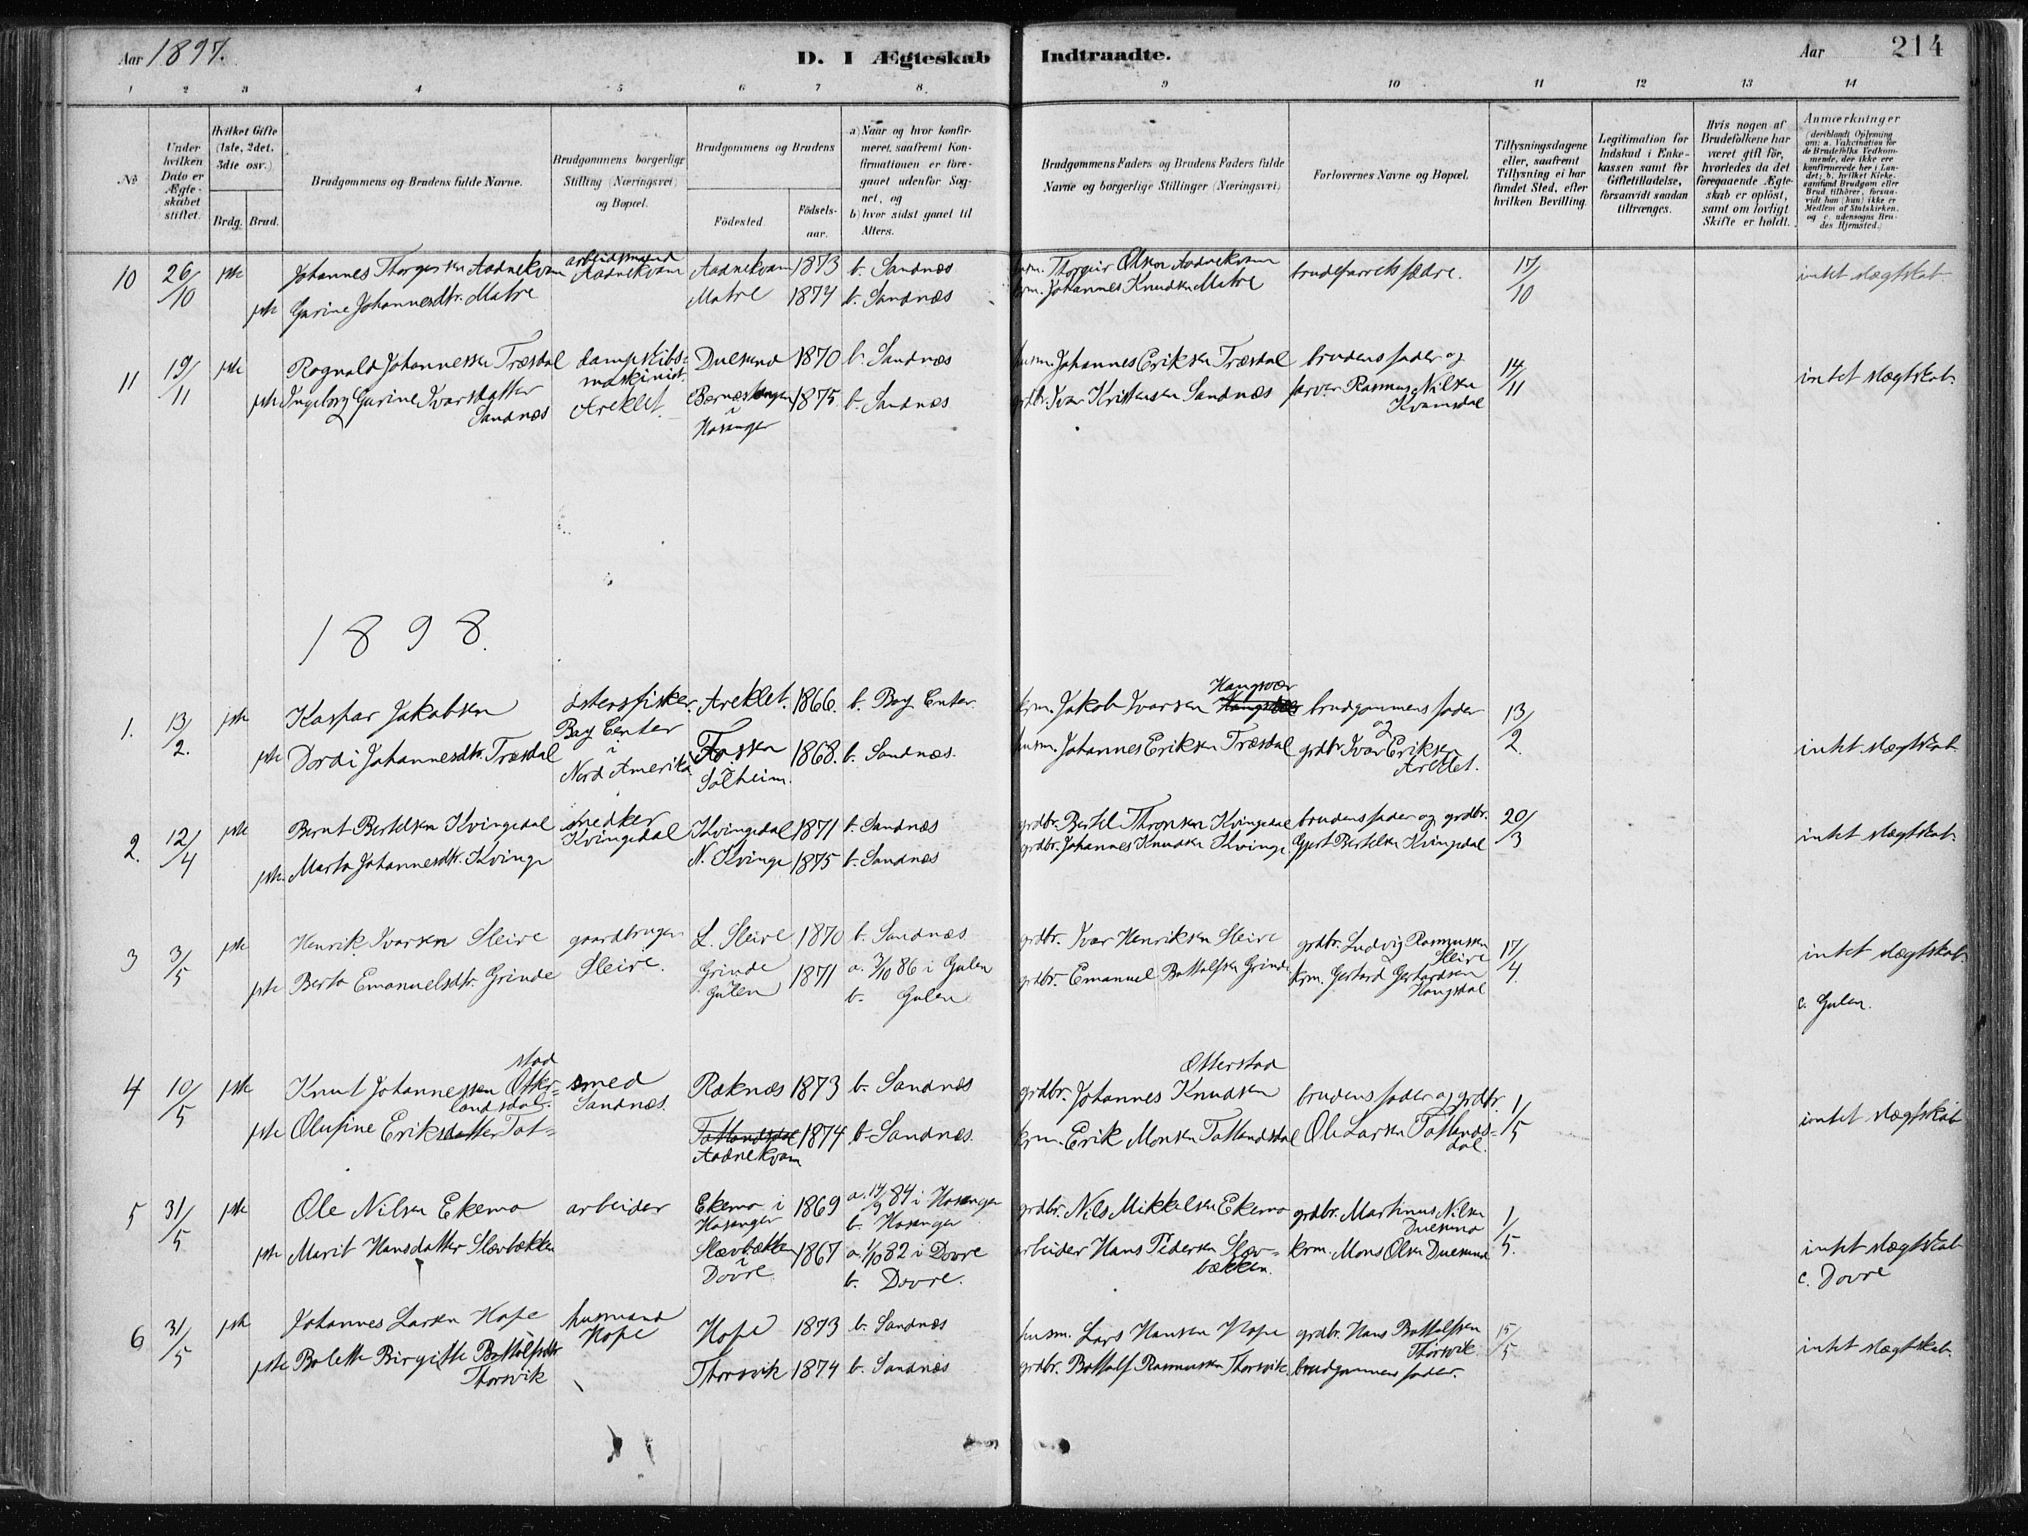 Aar 1897.
D. I Ægteskab Indtraadte.
Aar 214
1 2 3 4 5 6 7 8 9 10 11 12 13 14
No
Under hvilken Dato er Ægteskabet stiftet.
Hvilket Gifte (1ste, 2det, 3die osv.)
Brdg. Brud.
Brudgommens og Brudens fulde Navne.
Brudgommens borgerlige Stilling (Næringsvei) og Bopæl.
Brudgommens og Brudens
Födested.
Födsels-aar.
a) Naar og hvor konfirmeret, saafremt Konfirmationen er foregaaet udenfor Sognet, og
b) hvor sidst gaaet til Alters.
Brudgommens Faders og Brudens Faders fulde Navne og borgerlige Stillinger (Næringsvei)
Forlovernes Navne og Bopæl.
Tillysningsdagene eller, saafremt Tillysning ei har fundet Sted, efter hvilken Bevilling.
Legitimation for Indskud i Enkekassen samt for Giftetilladelse, forsaavidt saadan tiltrænges.
Hvis nogen af Brudefolkene har været gift för, hvorledes da det foregaaende Ægteskab er oplöst, samt om lovligt Skifte er holdt.
Anmærkninger
(deriblandt Oplysning om: a. Vakcination for de Brudefolks Vedkommende, der ikke ere konfirmerede her i Landet; b. hvilket Kirkesamfund Brudgom eller Brud tilhörer, forsaavidt han (hun) ikke er Medlem af Statskirken, og c. udensogns Brudes Hjemsted.)
10 26/10 1ste Johannes Thorgersen Aadnekvam arbeidsmand Aadnekvam Aadnekvam 1873 b. Sandnæs husm. Thorgeir Olsen Aadnekvam brudeparrets fædre. 17/10 intet slægtskab.
1ste Gurine Johannesdtr. Matre Matre 1874 b. Sandnæs krm. Johannes Knudsen Matre
11 19/11 1ste Ragnald Johannessen Træsdal dampskibsmaskinist Areklet. Duesund 1870 b. Sandnæs husm. Johannes Eriksen Træsdal brudens fader og 14/11 intet slægtskab.
1ste Ingeborg Gurine Ivarsdatter Sandnæs i Hosanger 1875 b. Sandnæs grdbr. Ivar Kristensen Sandnæs farver Rasmus Nilsen Kvamsdal
1898.
1. 13/2. 1ste Kaspar Jakobsen østersfisker Bay Center i Nord Amerika Areklet. 1866. b. Bay Center krm. Jakob Ivarsen Haugsvær brudgommens fader og 13/2. intet slægtskab
1ste Dordi Johannesdtr. Træsdal Fossen Solheim. 1868. b. Sandnæs. husm. Johannes Eriksen Træsdal grdbr. Ivar Eriksen Areklet.
2. 12/4 1ste Bernt Bertelsen Kvingedal snedker Kvingedal Kvingedal 1871 b. Sandnæs grdbr. Bertel Thronsen Kvingedal brudens fader og grdbr. 20/3 intet slægtskab.
1ste Marta Johannesdtr. Kvinge N. Kvinge 1875 b. Sandnæs grdbr. Johannes Knudsen Kvinge Gjert Bertelsen Kvingedal
3 3/5 1ste Henrik Ivarsen Sleire gaardbruger Sleire. L. Sleire 1870 b. Sandnæs grdbr. Ivar Henriksen Sleire grdbr. Ludvig Rasmussen Sleire 17/4. intet slægtskab.
1ste Berta Emanuelsdtr. Grinde Grinde Gulen 1871 a. 3/10 86 i Gulen b. Gulen grdbr. Emanuel Bottolfsen Grinde krm. Gerhard Gerhardsen Haugsdal c. Gulen.
4 10/5 1ste Knut Johannessen Otterstad smed Sandnæs. Raknæs 1873 b. Sandnæs grdbr. Johannes Knudsen Otterstad brudens fader og grdbr. 1/5 intet slægtskab
1ste Olufine Eriksdatter Tot=landsdal. Totlandsdal Aadnekvam 1874 b. Sandnæs. krm. Erik Monsen Totlandsdal Ole Larsen Totlandsdal.
5 31/5 1ste Ole Nilsen Ekemo arbeider Ekemo i Hosanger 1869 a. 14/9 84 i Hosanger b. Hosanger grdbr. Nils Mikkelsen Ekemo grdbr. Martinus Nilsen Duesund 1/5. intet slægtskab
1ste Marit Hansdatter Slævbækken Slævbækken i Dovre 1867 a. 1/10 82 i Dovre b. Dovre. arbeider Hans Pedersen Slævbækken. krm. Mons Olsen Duesund c. Dovre
6 31/5 1ste Johannes Larsen Hope husmand Hope Hope 1873 b. Sandnæs husm. Lars Hansen Hope grdbr. Hans Bottolfsen Thorsvik 15/5 intet slægtskab.
1ste Bolette Birgitte Bottolfsdtr Thorsvik Thorsvik 1874 b. Sandnæs grdbr. Bottolf Rasmussen Thorsvik. brudgommens fader.